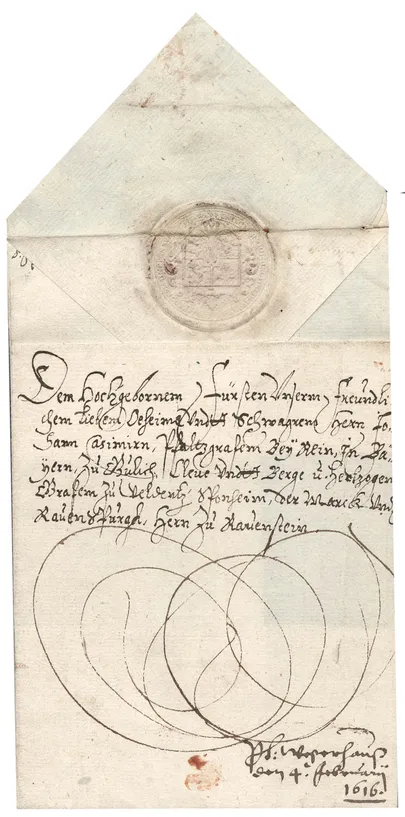 Dem Hochgebornem Fürsten Unserm freundli-
chem lieben Oeheimb Undtt Schwagrenn Herrn Jo-
hann Casimirn, Pfaltzgrafem Bey Rein, In Ba-
yern, Zu Gulich, Cleve Undtt Berge u. Hertzogen
Grafem Zu Veldentz, Sponheim, der Marck Und
Ravenspurgh, Herrn Zu Ravenstein
den 4. Februarij
1616.